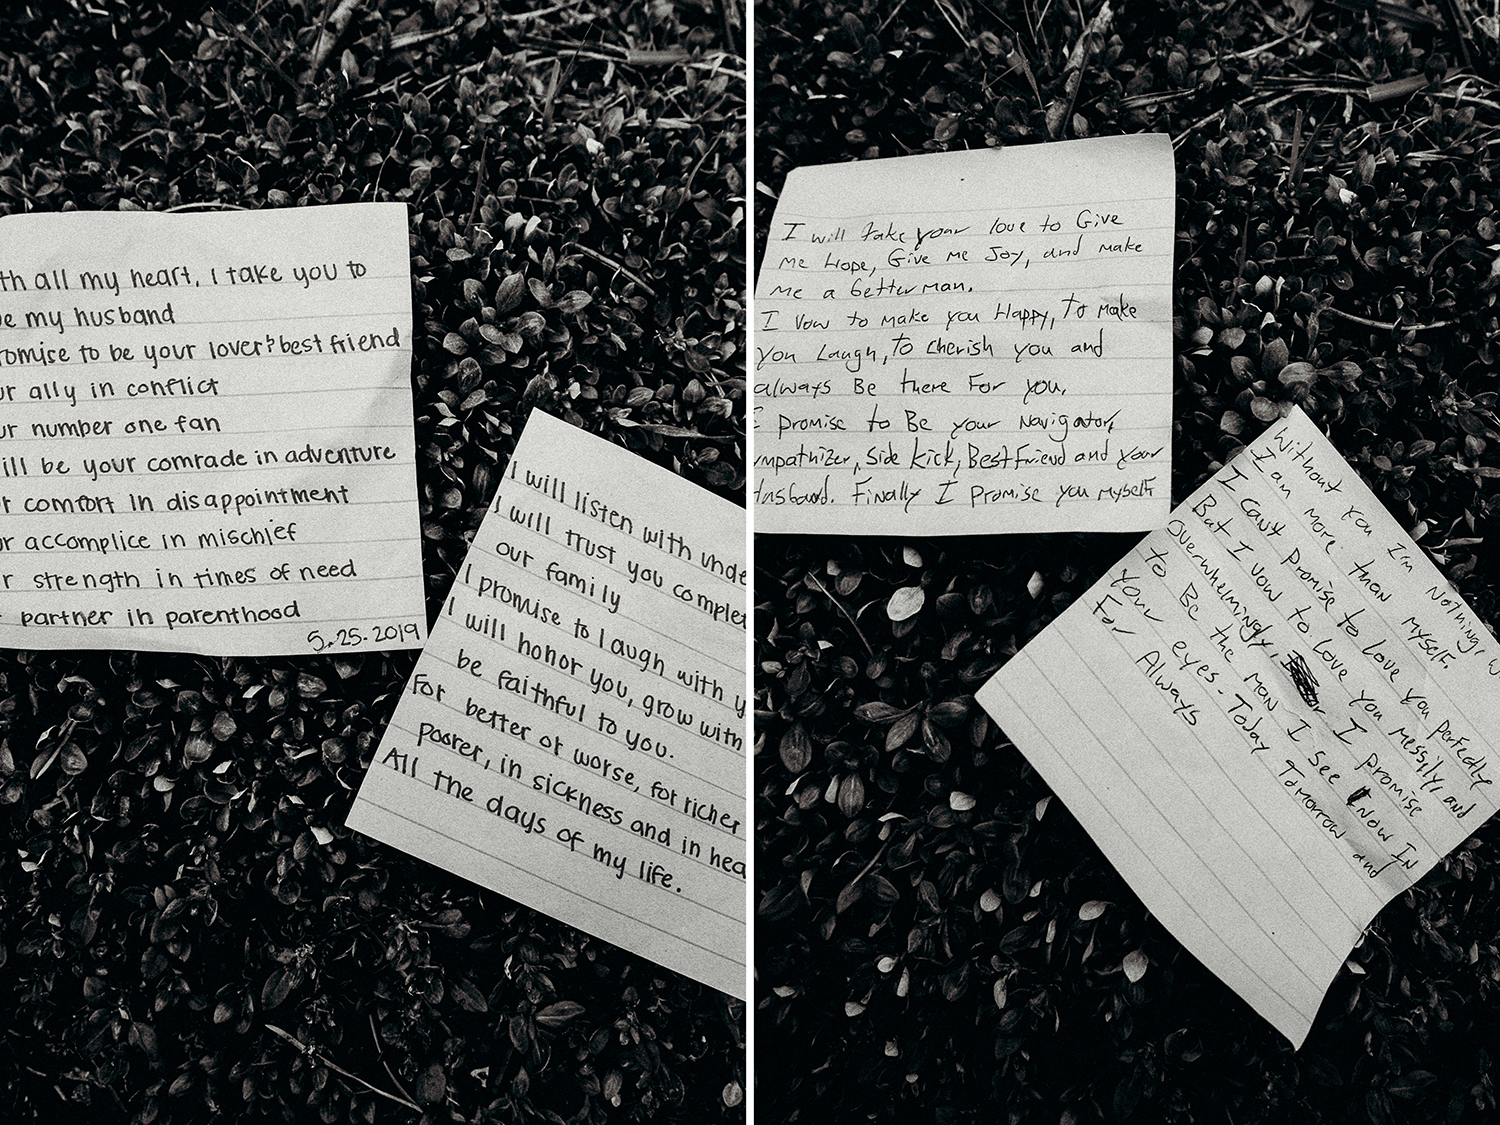 th all my heart, I take you to
e my husband
romise to be your lover & best friend
ur ally in conflict
ur number one fan
ill be your comrade in adventure
r comfort in disappointment
ur accomplice in mischief
r strength in times of need
partner in parenthood
5.25.2019
I will listen with unde
I will trust you complet
our family
I promise to laugh with y
I will honor you, grow with
be faithful to you.
For better or worse, for richer
poorer, in sickness and in hea
All the days of my life.
I will take your love to Give
me Hope, Give me Joy, and make
me a better man.
I vow to make you Happy, to make
you Laugh, to cherish you and
always Be there For you.
I promise to Be your Navigator,
ympathizer, Side kick, Best Friend and your
Husband. Finally I promise you myself
Without you I'm Nothing, w
I am more than myself.
I cant promise to love you perfectly
But I vow to Love you messily, and
overwhelmingly, I promise
to Be the man I see now IN
your eyes - Today Tomorrow and
For Always